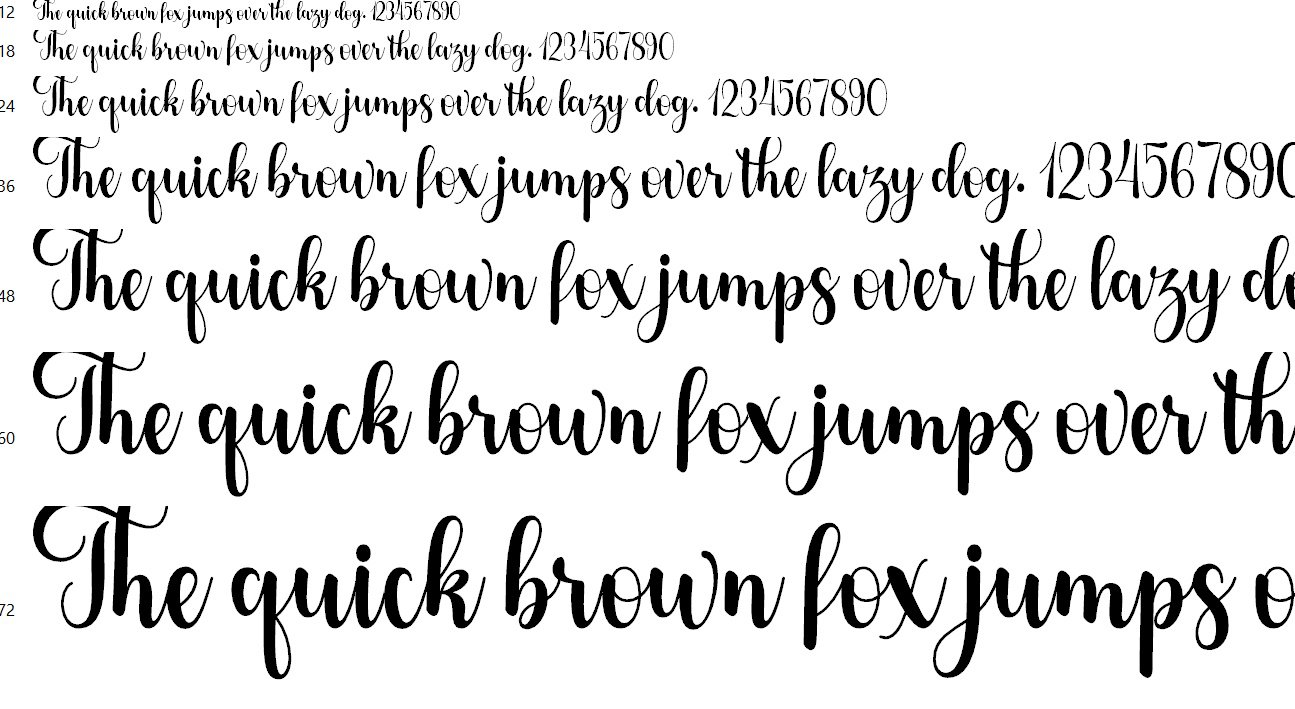 12 The quick brown fox jumps over the lazy dog. 1234567890
18 The quick brown fox jumps over the lazy dog. 1234567890
24 The quick brown fox jumps over the lazy dog. 1234567890
36 The quick brown fox jumps over the lazy dog. 1234567890
48 The quick brown fox jumps over the lazy do
60 The quick brown fox jumps over th
72 The quick brown fox jumps o